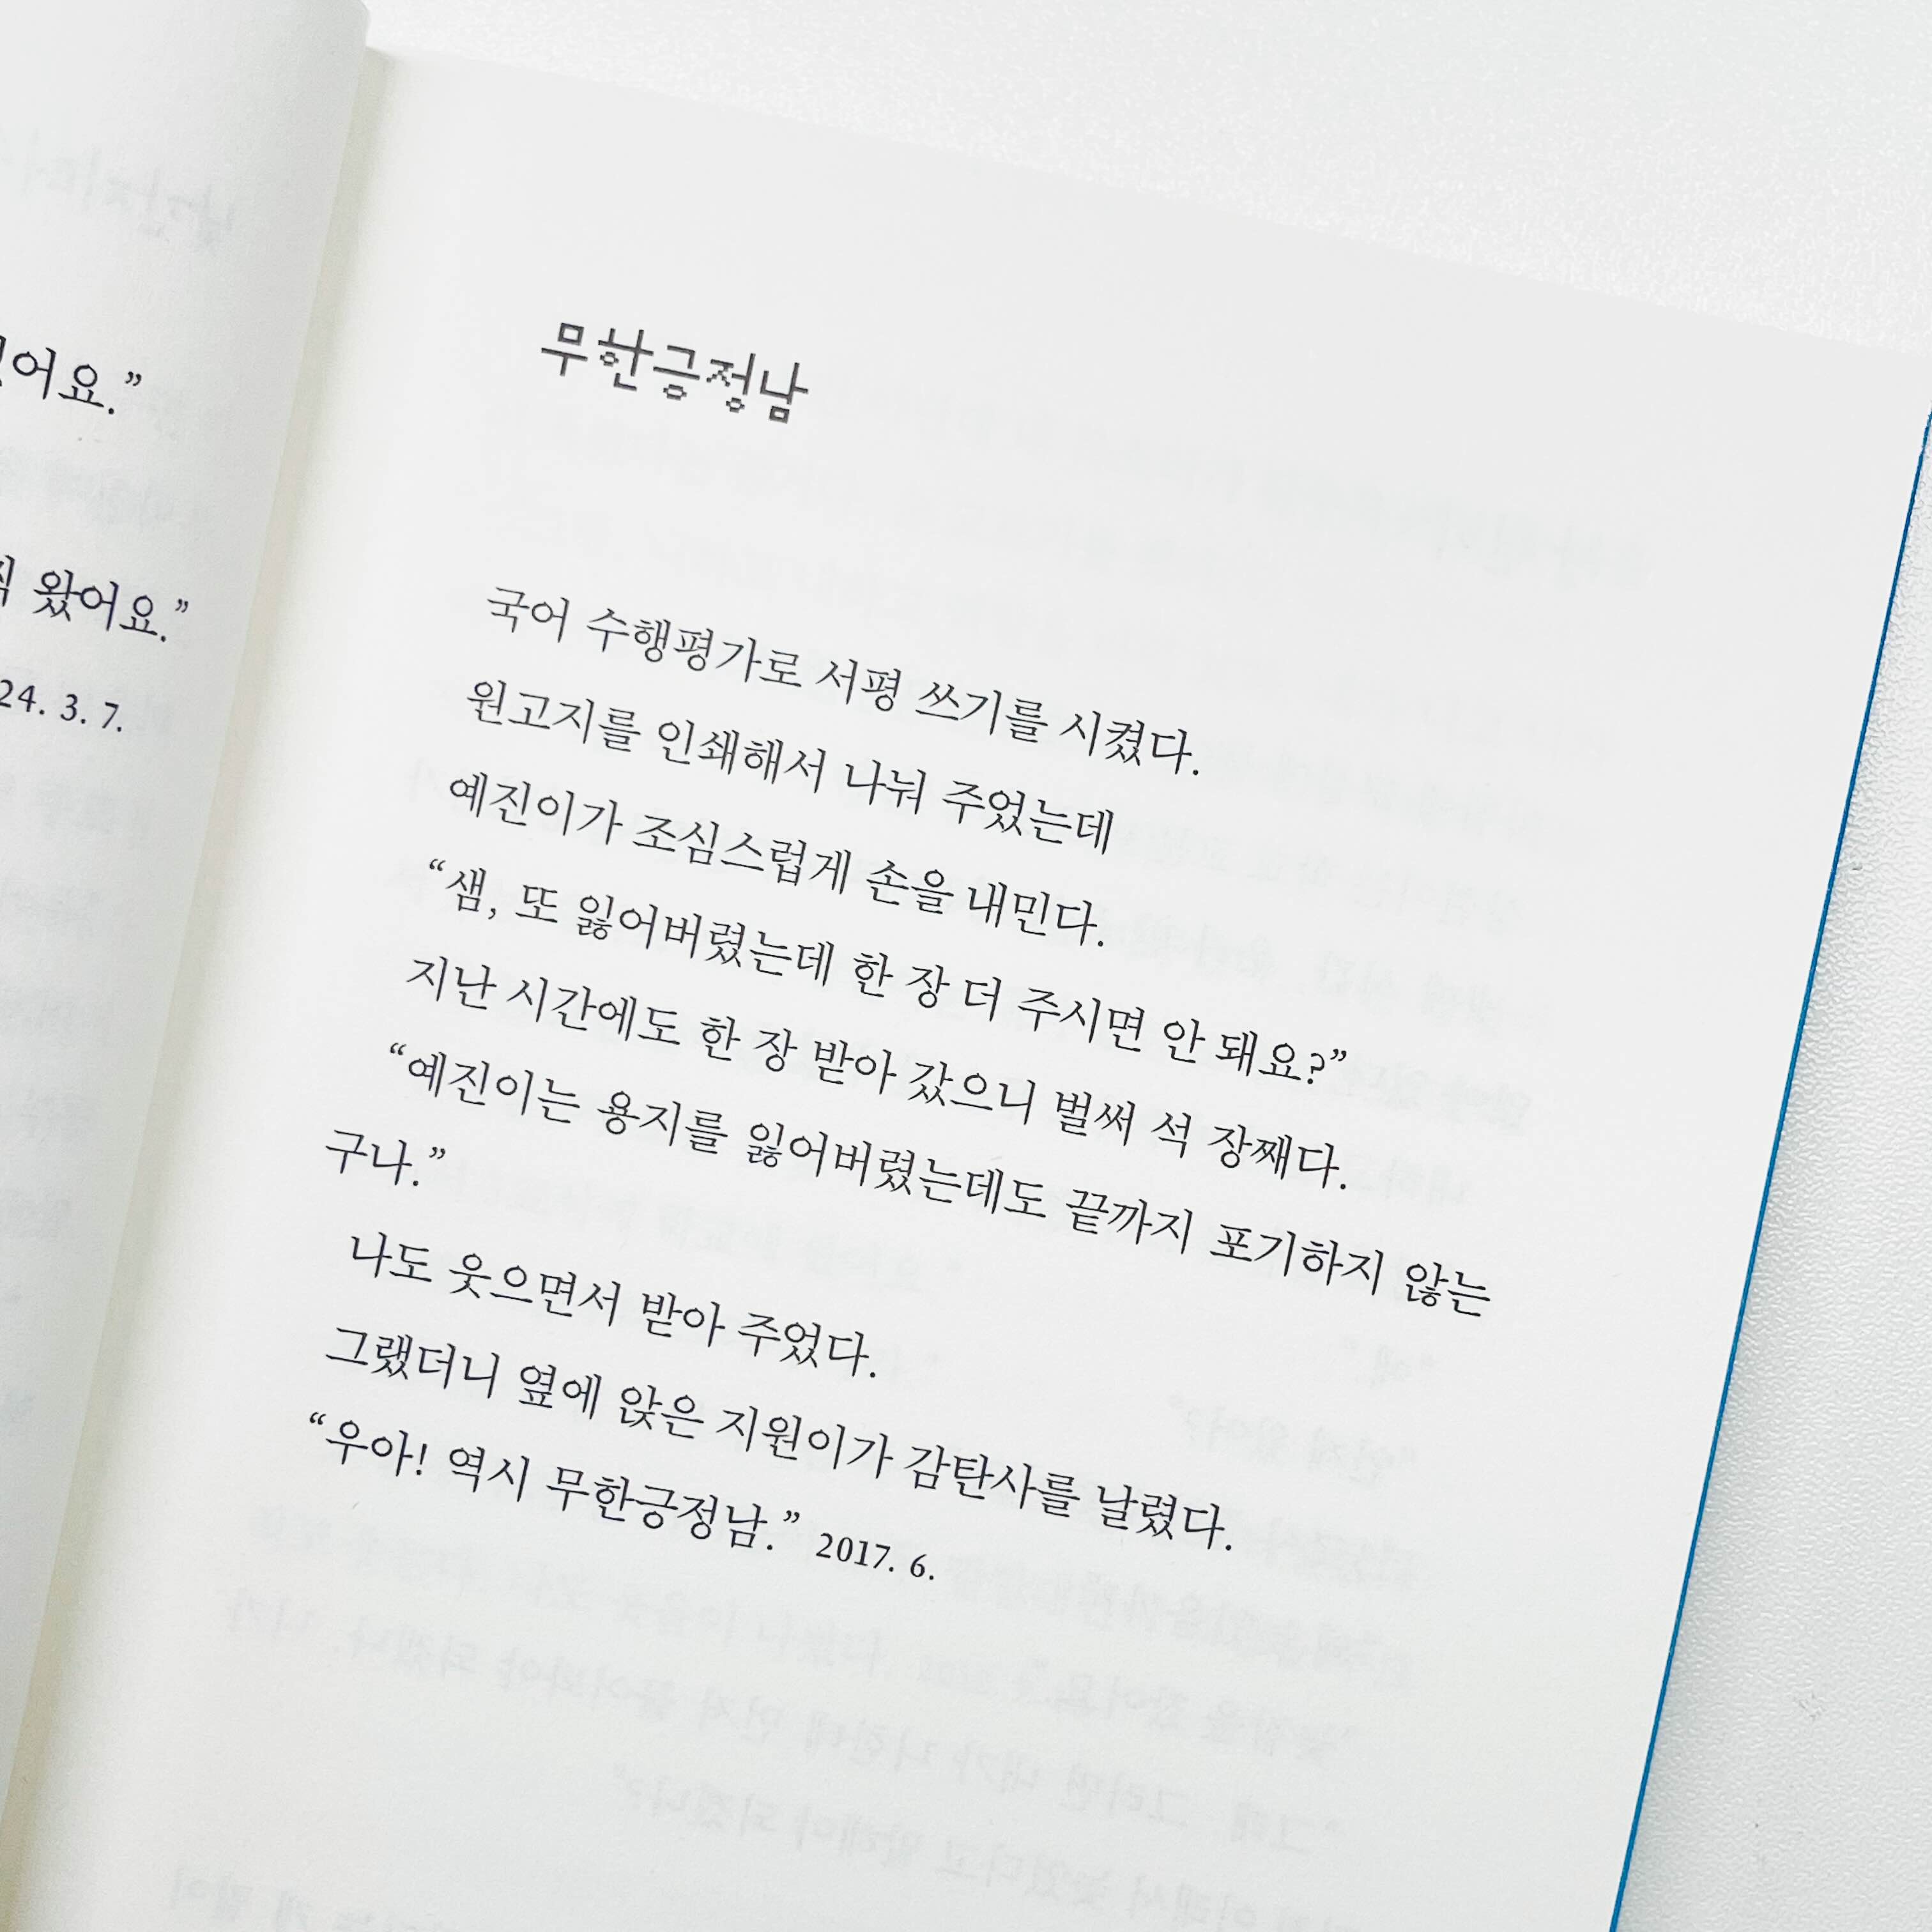 어요.”
왔어요.”
24. 3. 7.
무한긍정남
국어 수행평가로 서평 쓰기를 시켰다.
원고지를 인쇄해서 나눠 주었는데
예진이가 조심스럽게 손을 내민다.
“샘, 또 잃어버렸는데 한 장 더 주시면 안 돼요?”
지난 시간에도 한 장 받아 갔으니 벌써 석 장째다.
“예진이는 용지를 잃어버렸는데도 끝까지 포기하지 않는
구나.”
나도 웃으면서 받아 주었다.
그랬더니 옆에 앉은 지원이가 감탄사를 날렸다.
“우아! 역시 무한긍정남.” 2017. 6.